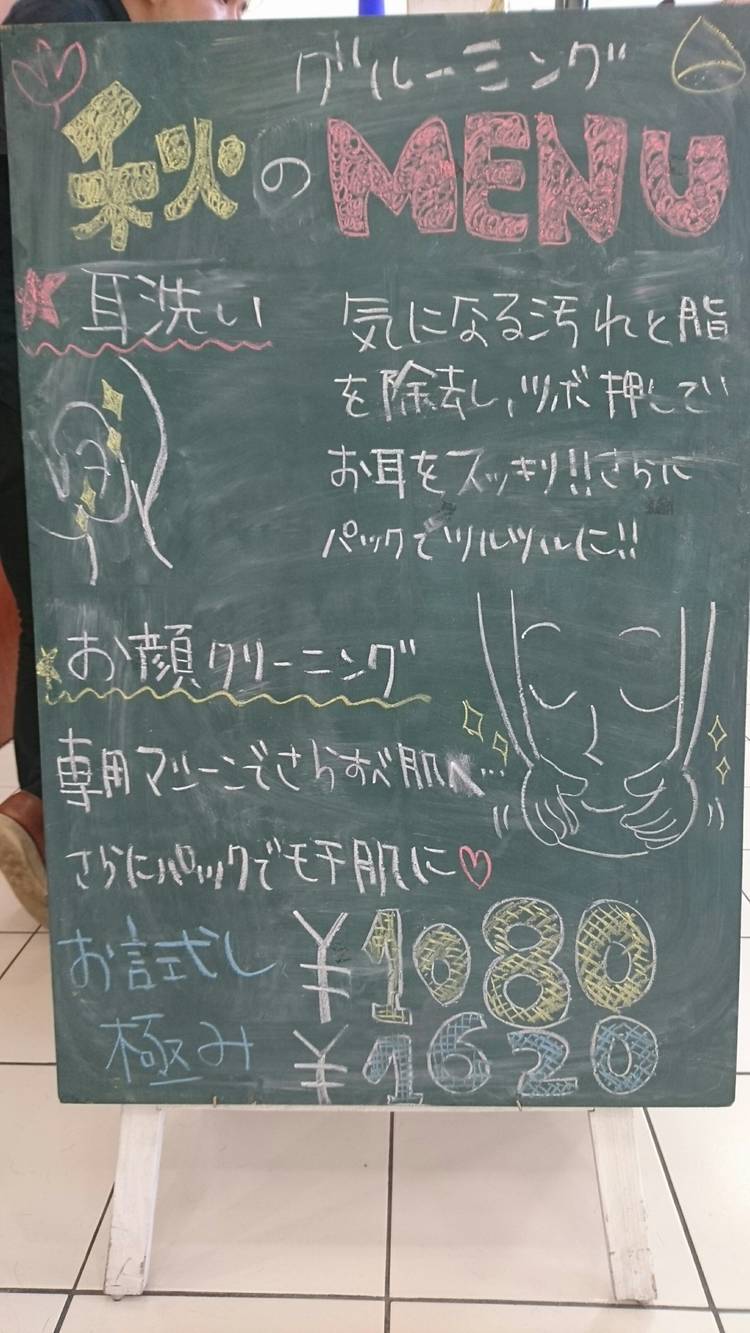 グルーミング
秋のMENU
耳洗い
気になる汚れと脂
を除去し、ツボ押しでい
お耳をスッキリ!!さらに
パックでツルツルに!!
お顔クリーニング
専用マシーンでさらすべ肌へ…
さらにパックでモチ肌に♡
お試し ¥1080
極み ¥1620